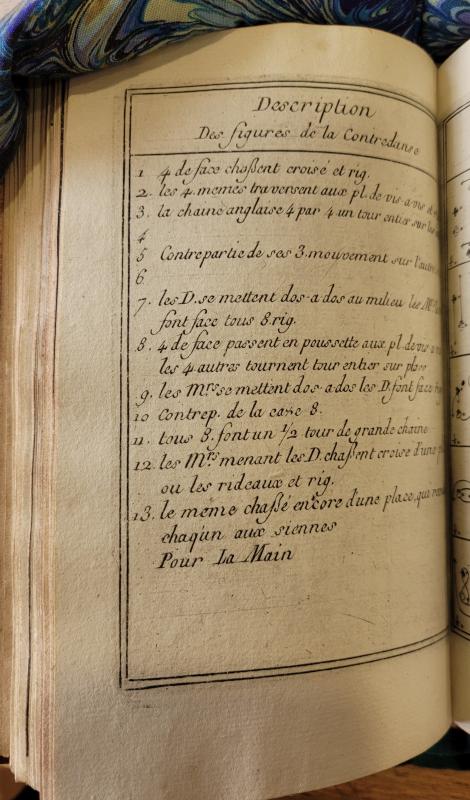 Description
Des figures de la Contredanse
1 4 de face chaßent croisé et rig.
2. les 4. memes traversent aux pl. de vis-a-vis
3. la chaine anglaise 4 par 4 un tour entier sur
4
5 Contrepartie de ses 3. mouvement sur l'autre
6
7. les D. se mettent dos-a dos au milieu les M.rs
font face tous 8. rig.
8. 4 de face passent en poussette aux pl. de vis-a
les 4. autres tournent tour entier sur place
9. les M.rs se mettent dos-a dos les D. font face
10 Contrep. de la case 8.
11. tous 8. font un 1/2 tour de grande chaine
12. les M.rs menant les D. chaßent croise d'une
ou les rideaux et rig.
13. le meme chaßé encore d'une place, qui
chaq'un aux siennes
Pour La Main